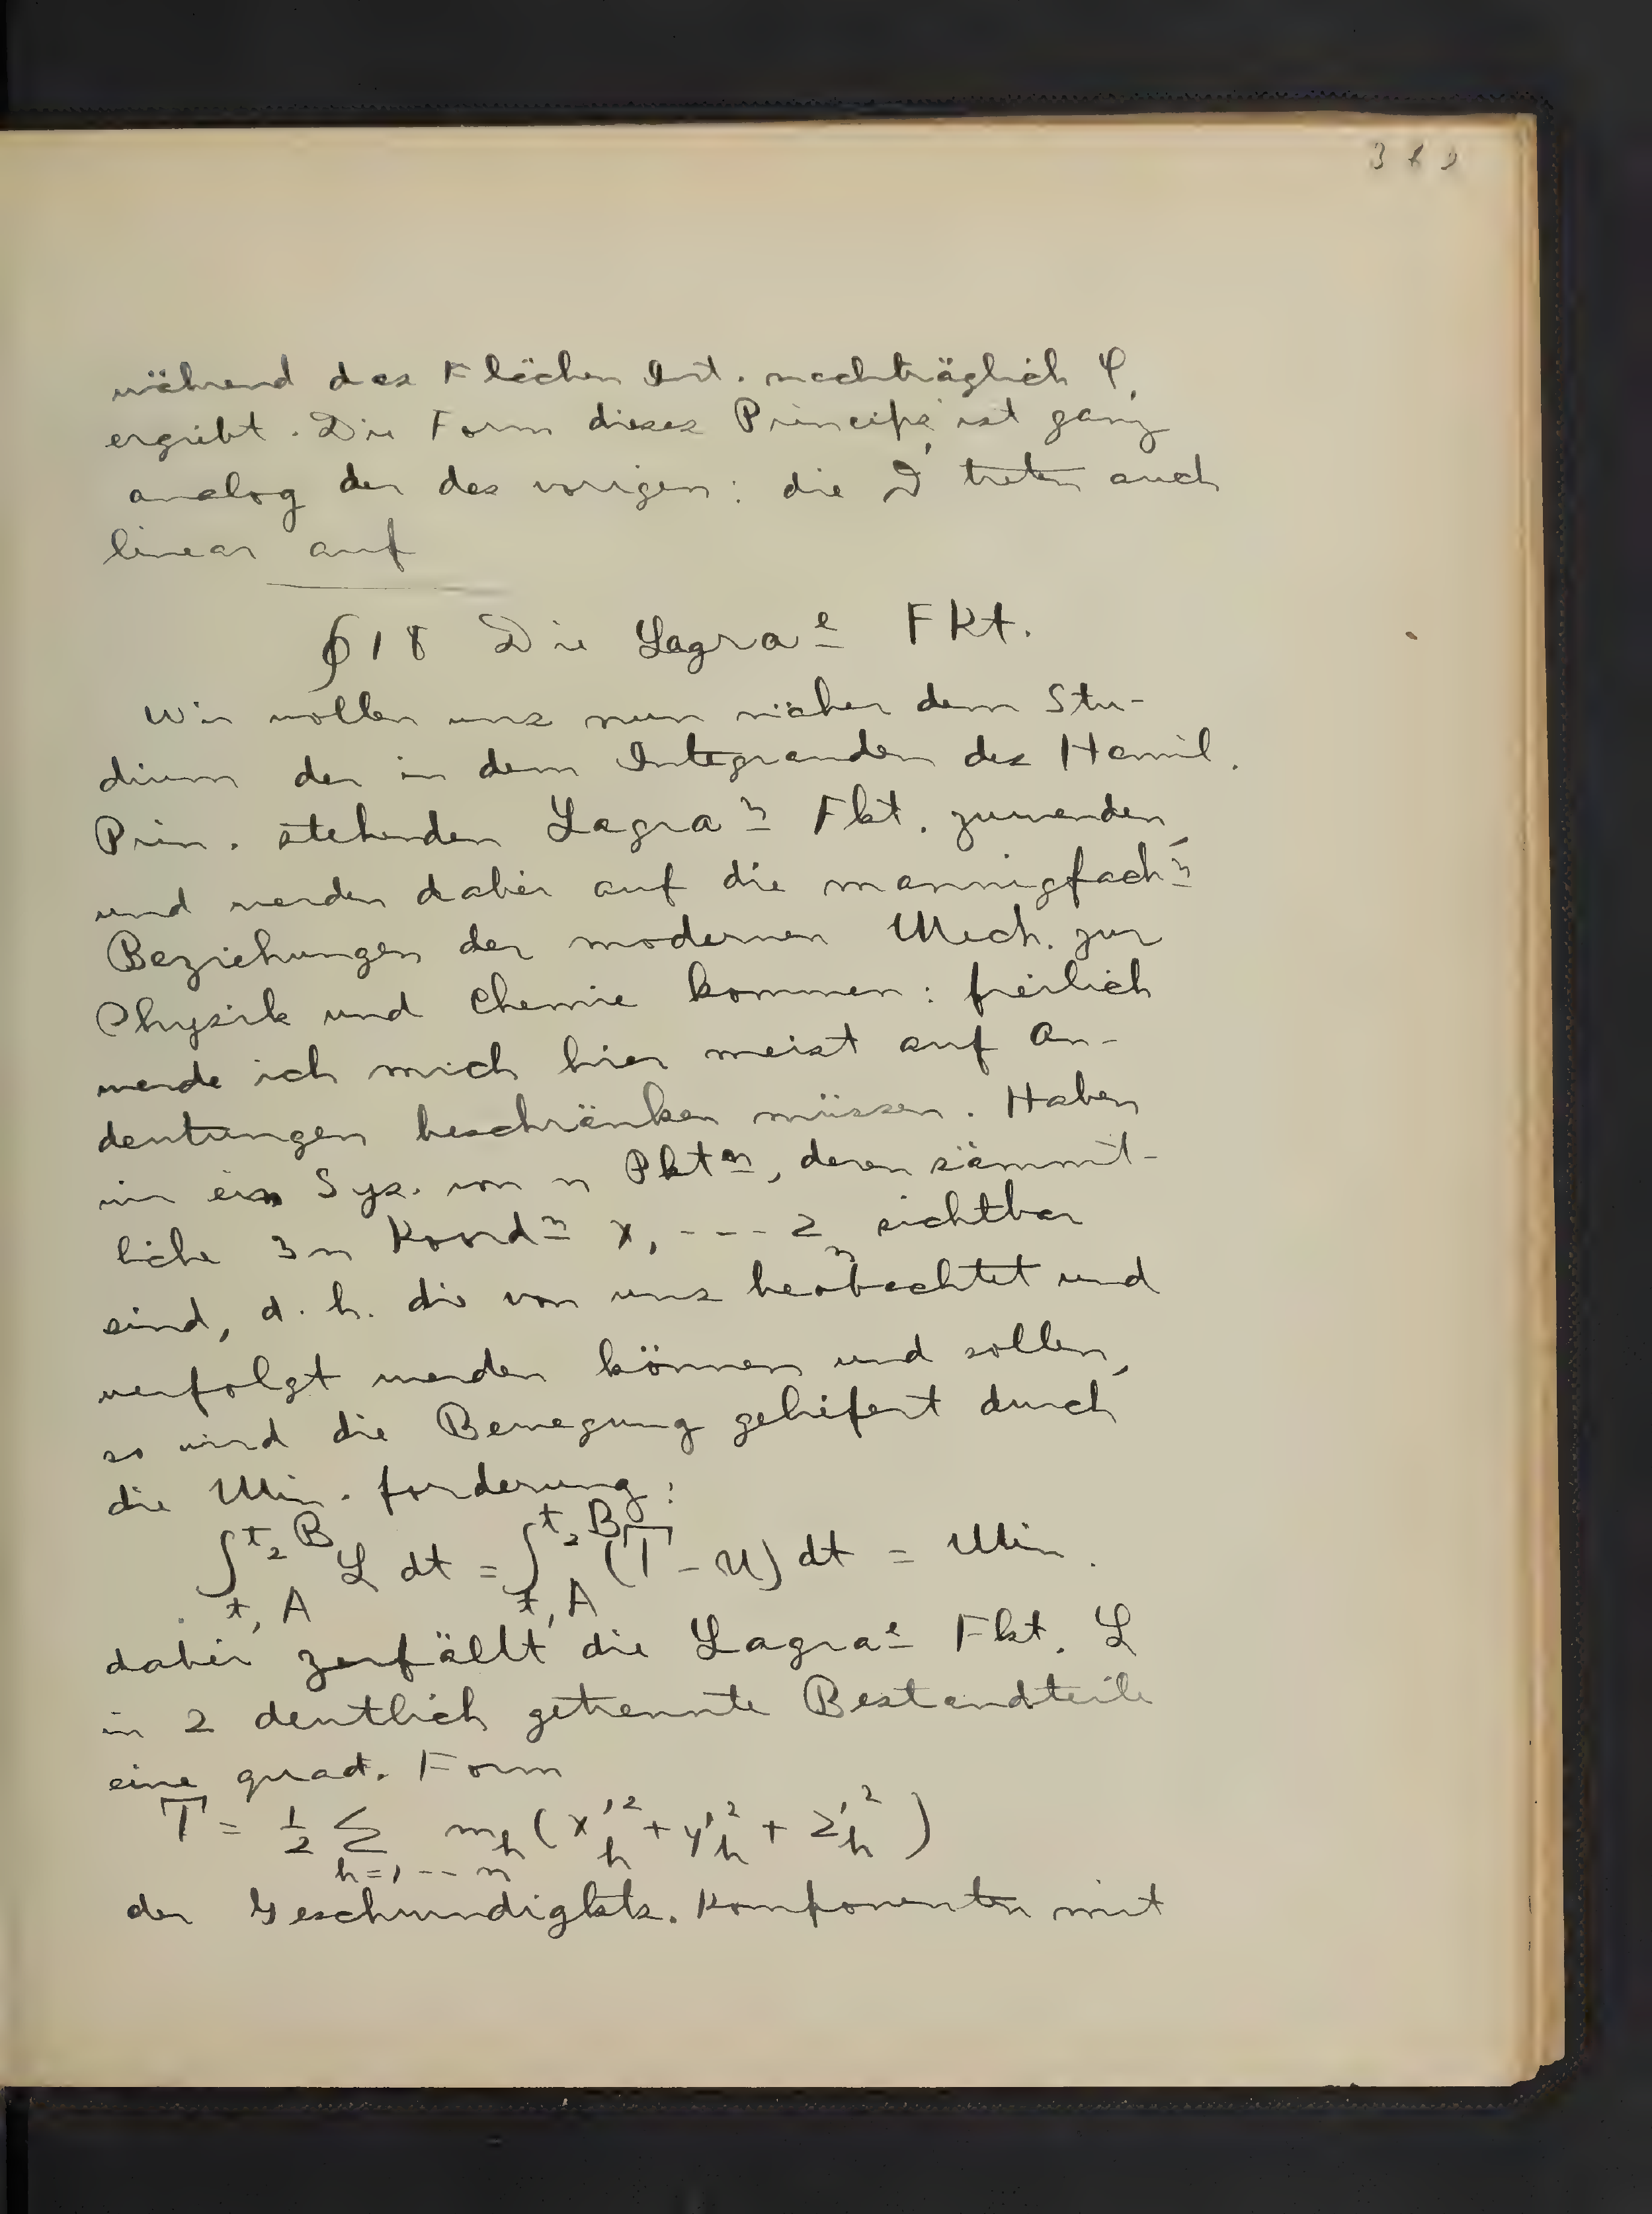 während das Flächen Int. nachträglich φ,
ergibt. Die Form dieses Princips ist ganz
analog der des vorigen: die ϑ' treten auch
linear auf
§ 18 Die Lagraᵉ Fkt.
Wir wollen uns nun näher dem Stu-
dium der in dem Integranden des Hamil.
Prin. stehenden Lagraⁿ Fkt. zuwenden,
und werden dabei auf die mannigfachⁿ
Beziehungen der modernen Mech. zur
Physik und Chemie kommen: freilich
werde ich mich hier meist auf An-
deutungen beschränken müssen. Haben
wir ein Sys. von n Pktⁿ, deren sämmt-
liche 3n Koordⁿ x₁ --- zₙ sichtbar
sind, d. h. die von uns beobachtet und
verfolgt werden können und sollen,
so wird die Bewegung geliefert durch
die Min. forderung:
∫_{t₁, A}^{t₂ B} L dt = ∫_{t₁, A}^{t₂ B} (T - U) dt = Min.
dabei zerfällt die Lagraᵉ Fkt. L
in 2 deutlich getrennte Bestandteile
eine quad. Form
T = 1/2 Σ_{h=1 --- n} m_h (x'_h² + y'_h² + z'_h²)
der Geschwindigkts. Komponenten mit